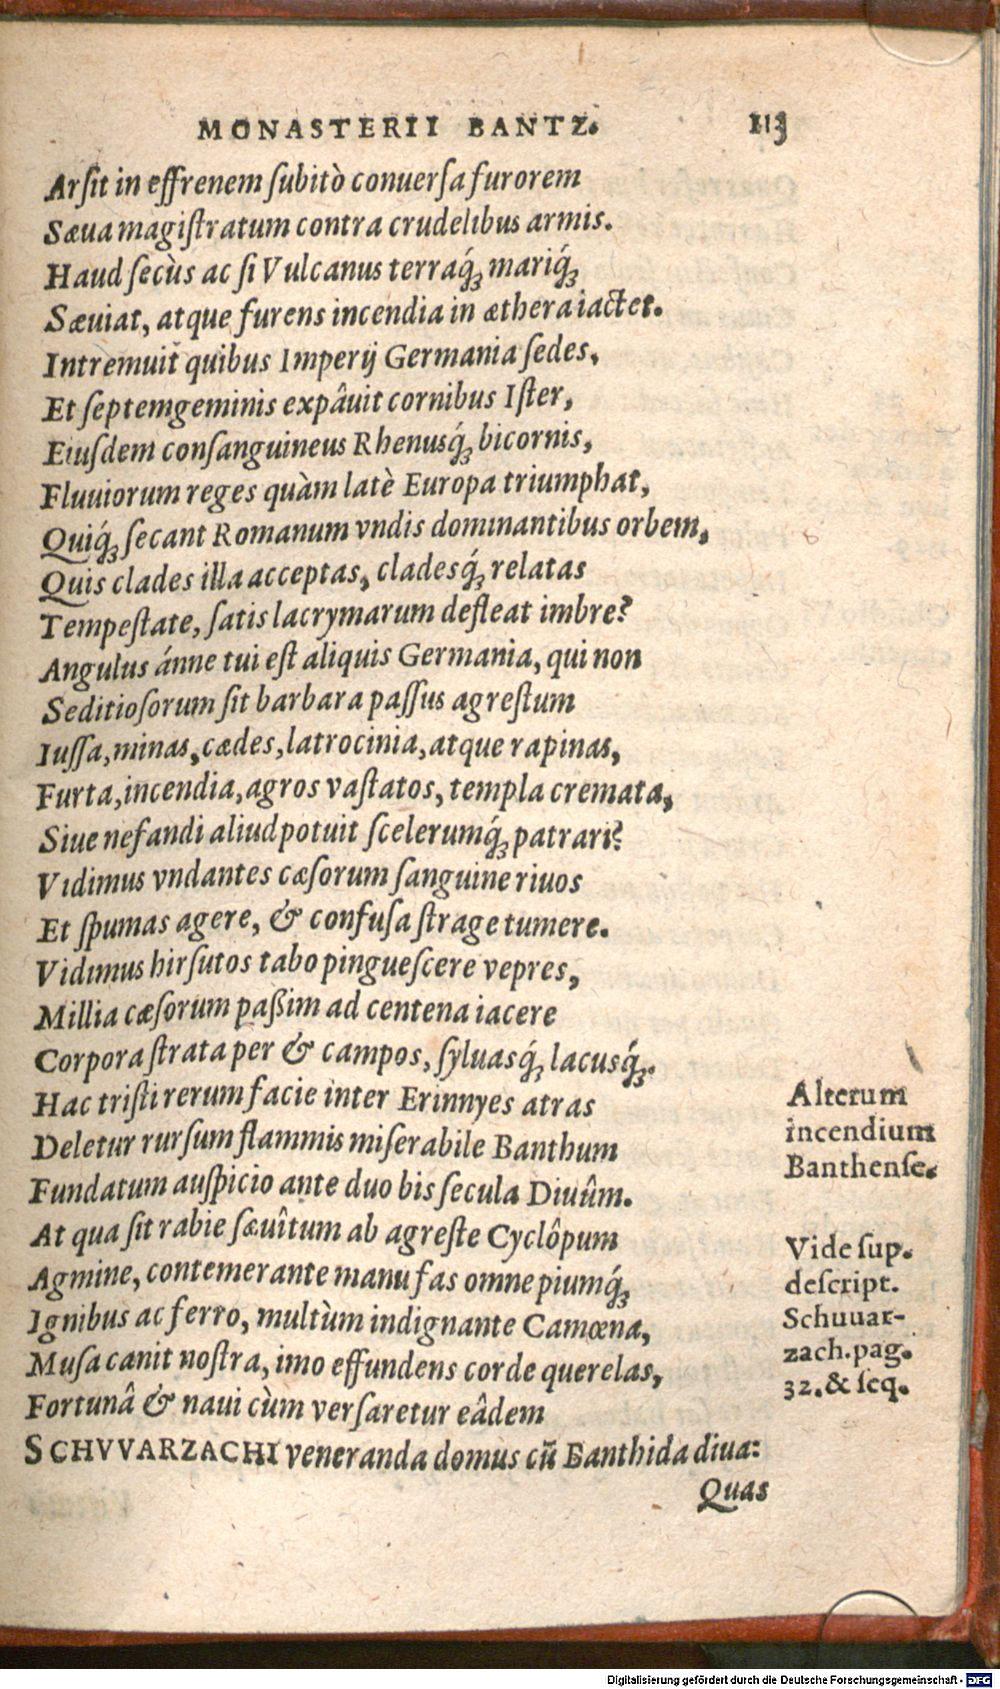 MONASTERII BANTZ. 113
Arſit in effrenem ſubitò conuerſa furorem
Sæua magiſtratum contra crudelibus armis.
Haud ſecùs ac ſi Vulcanus terraq́; mariq́;
Sæuiat, atque furens incendia in æthera iactet.
Intremuit quibus Imperij Germania ſedes,
Et ſeptemgeminis expâuit cornibus Iſter,
Eiuſdem conſanguineus Rhenusq́; bicornis,
Fluuiorum reges quàm latè Europa triumphat,
Quiq́; ſecant Romanum vndis dominantibus orbem,
Quis clades illa acceptas, cladesq́; relatas
Tempeſtate, ſatis lacrymarum defleat imbre?
Angulus ánne tui eſt aliquis Germania, qui non
Seditioſorum ſit barbara paſſus agreſtum
Iuſſa, minas, cædes, latrocinia, atque rapinas,
Furta, incendia, agros vaſtatos, templa cremata,
Siue nefandi aliud potuit ſcelerumq́; patrari?
Vidimus vndantes cæſorum ſanguine riuos
Et ſpumas agere, & confuſa ſtrage tumere.
Vidimus hirſutos tabo pingueſcere vepres,
Millia cæſorum paßim ad centena iacere
Corpora ſtrata per & campos, ſyluasq́; lacusq́;.
Hac triſti rerum facie inter Erinnyes atras
Deletur rurſum flammis miſerabile Banthum
Fundatum auſpicio ante duo bis ſecula Diuûm.
At qua ſit rabie ſæuîtum ab agreſte Cyclôpum
Agmine, contemerante manu fas omne piumq́;
Ignibus ac ferro, multùm indignante Camœna,
Muſa canit noſtra, imo effundens corde querelas,
Fortunâ & naui cùm verſaretur eâdem
SCHVVARZACHI veneranda domus cū Banthida diua:
Quas
Alterum
incendium
Banthenſe.
Vide ſup.
deſcript.
Schuuar-
zach. pag.
32. & ſeq.
Digitalisierung gefördert durch die Deutsche Forschungsgemeinschaft - DFG